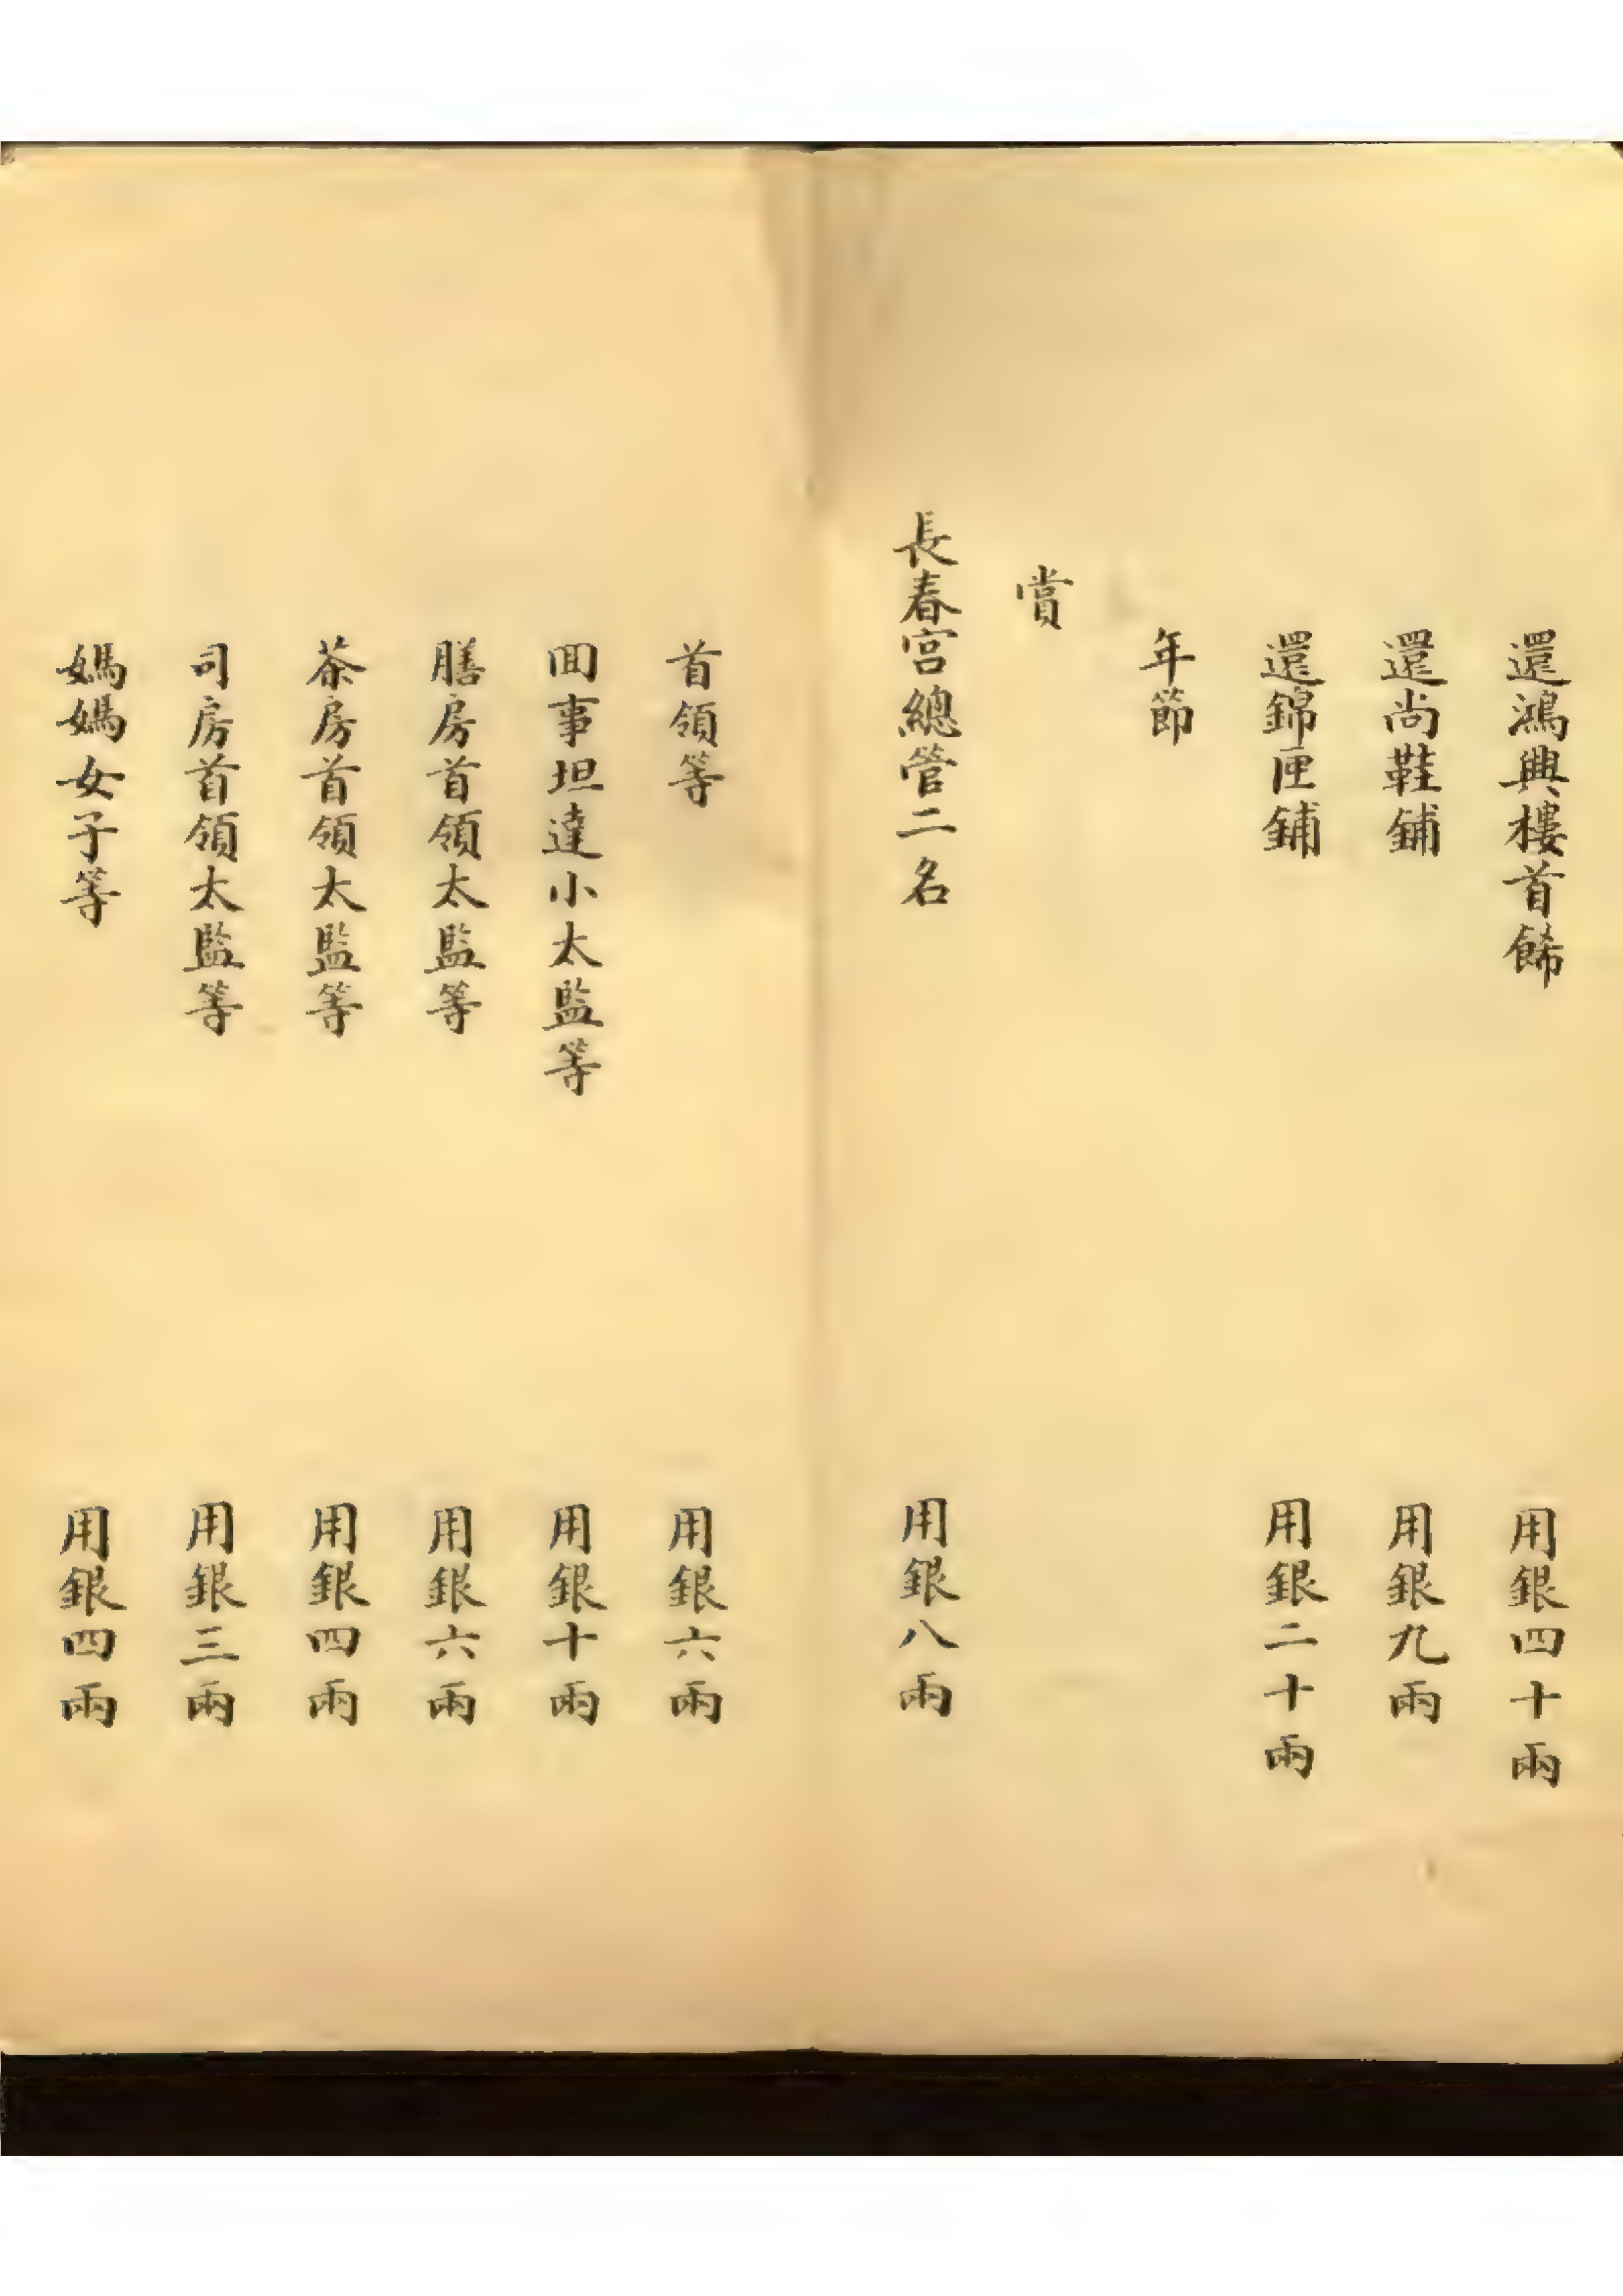 還鴻興樓首餙 用銀四十兩
還尚鞋鋪 用銀九兩
還錦匣鋪 用銀二十兩
年節
賞
長春宮總管二名 用銀八兩
首領等 用銀六兩
囬事坦達小太監等 用銀十兩
膳房首領太監等 用銀六兩
茶房首領太監等 用銀四兩
司房首領太監等 用銀三兩
媽媽女子等 用銀四兩